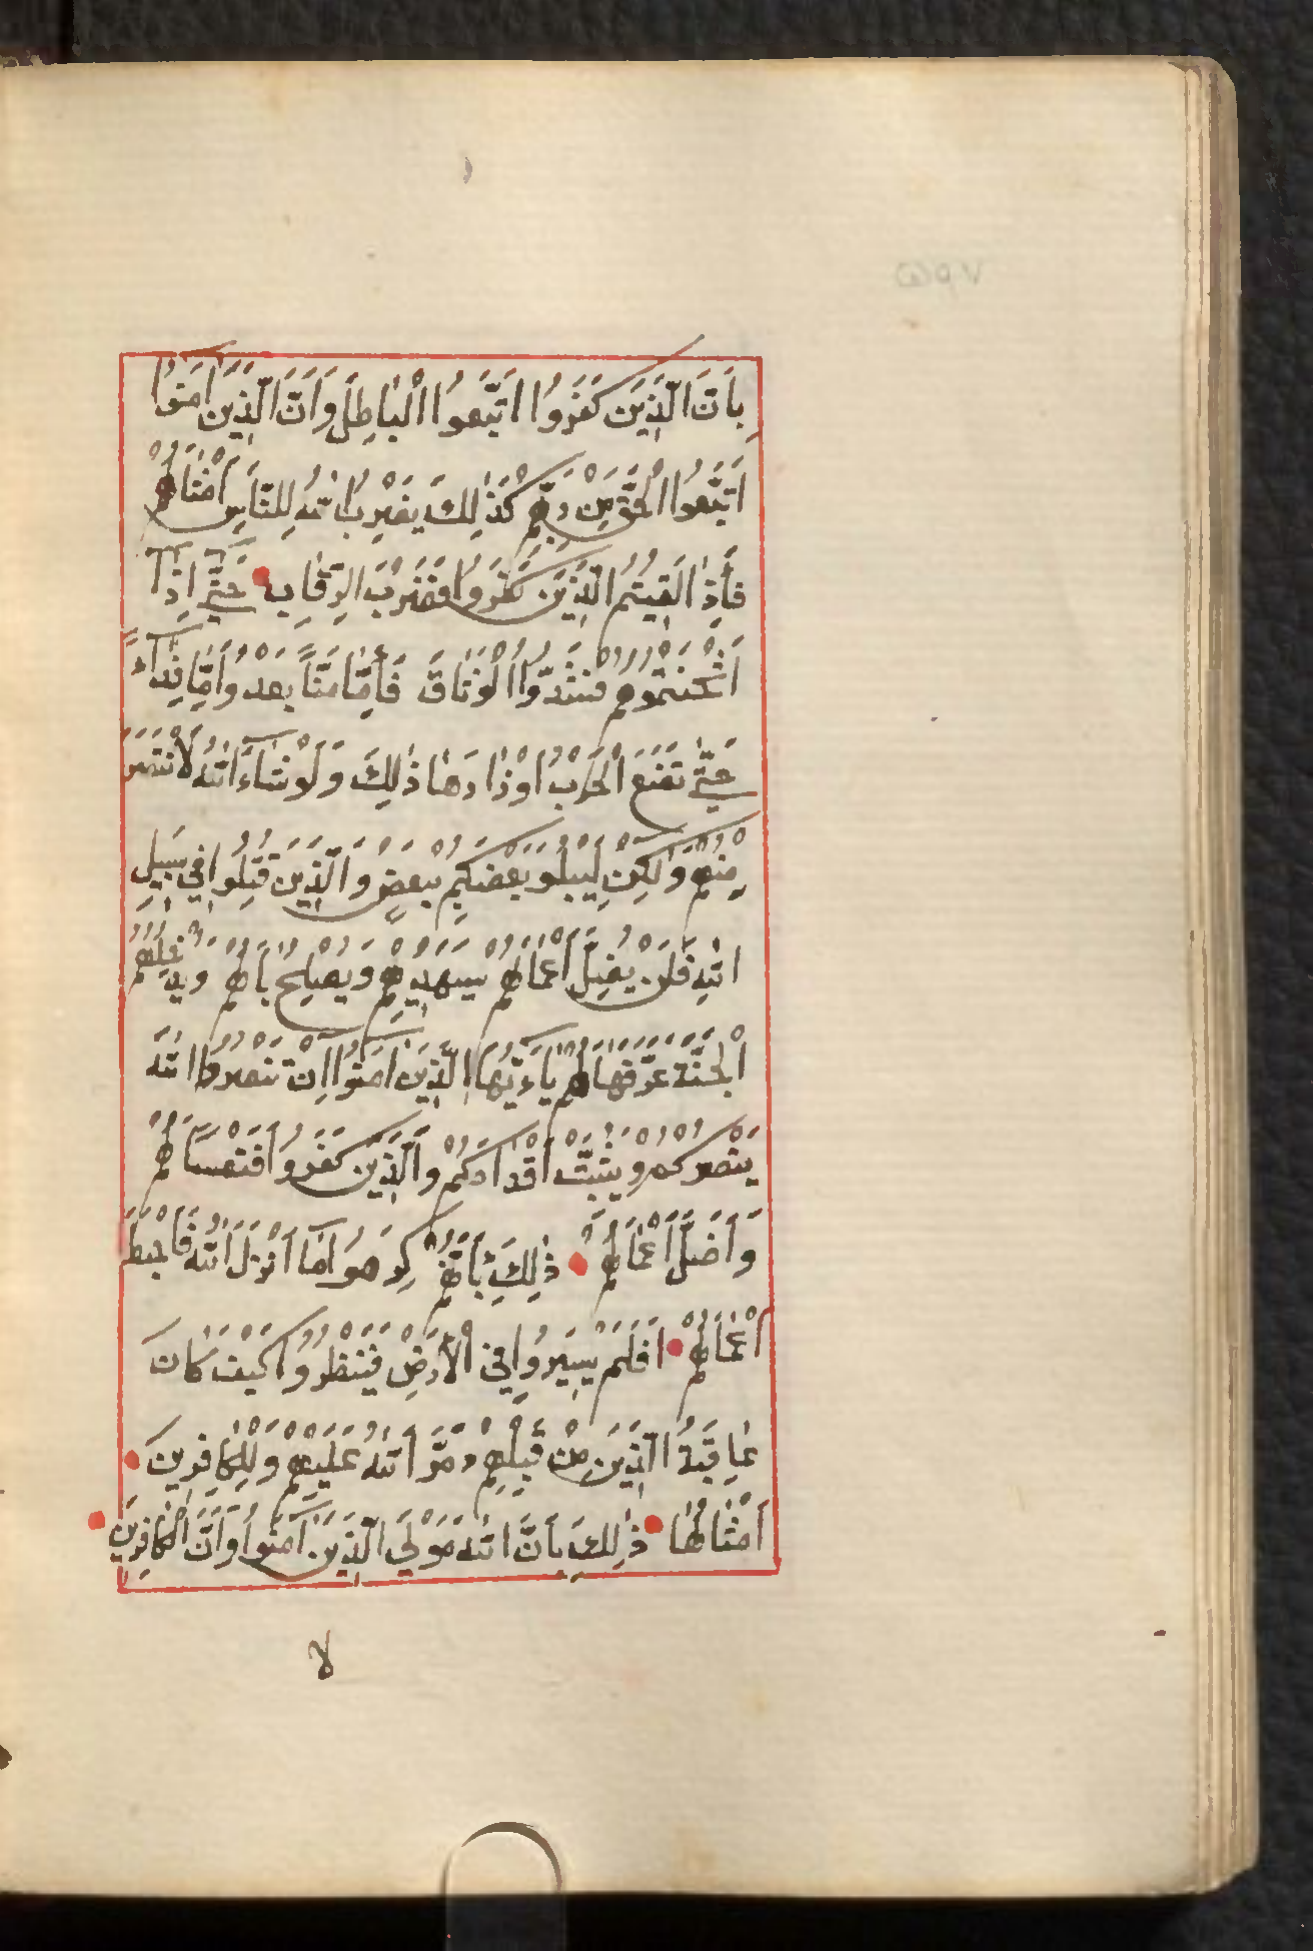 بِاَنَّ الَّذِيَن كَفَرُوا اتَّبَعُوا الْبَاطِلَ وَاَنَّ الَّذِينَ اٰمَنُوا
اتَّبَعُوا الْحَقَّ مِنْ رَبِّهِمْ كَذٰلِكَ يَضْرِبُ اللهُ لِلنَّاسِ اَمْثَالَهُمْ
فَأِذَا لَقِيتُمُ الَّذِينَ كَفَرُوا فَضَرْبَ الرِّقَابِ حَتَّى اِذَا
اَثْخَنْتُمُوهُمْ فَشُدُّوا الْوَثَاقَ فَأِمَّا مَنّاً بَعْدُ وَاِمَّا فِدَاءً
حَتَّى تَضَعَ الْحَرْبُ اَوْزَارَهَا ذٰلِكَ وَلَوْ شَاءَ اللهُ لَانْتَصَرَ
مِنْهُمْ وَلٰكِنْ لِيَبْلُوَ بَعْضَكُمْ بِبَعْضٍ وَالَّذِينَ قُتِلُوا فِي سَبِيلِ
اللهِ فَلَنْ يُضِلَّ اَعْمَالَهُمْ سَيَهْدِيهِمْ وَيُصْلِحُ بَالَهُمْ وَيُدْخِلُهُمُ
الْجَنَّةَ عَرَّفَهَا لَهُمْ يَاءَيُّهَا الَّذِينَ اٰمَنُوا اِنْ تَنْصُرُوا اللهَ
يَنْصُرْكُمْ وَيُثَبِّتْ اَقْدَامَكُمْ وَالَّذِينَ كَفَرُوا فَتَعْسًا لَهُمْ
وَاَضَلَّ اَعْمَالَهُمْ ذٰلِكَ بِاَنَّهُمْ كَرِهُوا مَا اَنْزَلَ اللهُ فَاَحْبَطَ
اَعْمَالَهُمْ اَفَلَمْ يَسِيرُوا فِي الْاَرْضِ فَيَنْظُرُوا كَيْفَ كَانَ
عَاقِبَةُ الَّذِينَ مِنْ قَبْلِهِمْ دَمَّرَ اللهُ عَلَيْهِمْ وَلِلْكَافِرِينَ
اَمْثَالُهَا ذٰلِكَ بِاَنَّ اللهَ مَوْلَى الَّذِينَ اٰمَنُوا وَاَنَّ الْكَافِرِينَ
لا